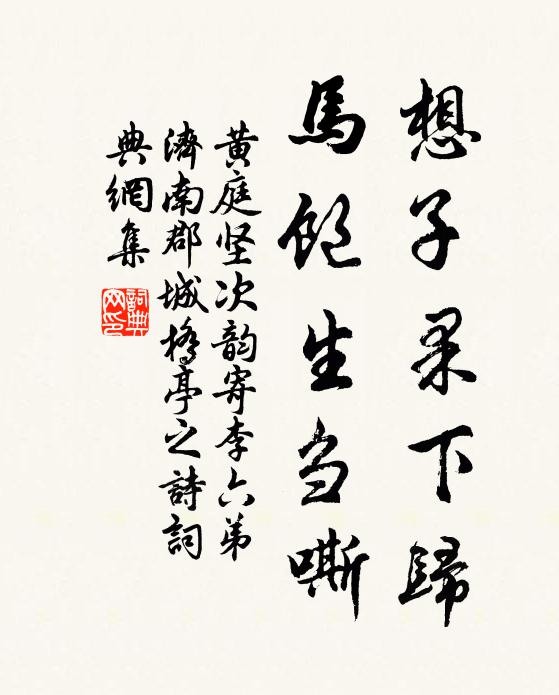 想子果下歸
馬飽生刍嘶
黄庭坚次韵寄李六弟
濟南郡城橋亭之詩詞
典網集
詞典
网印